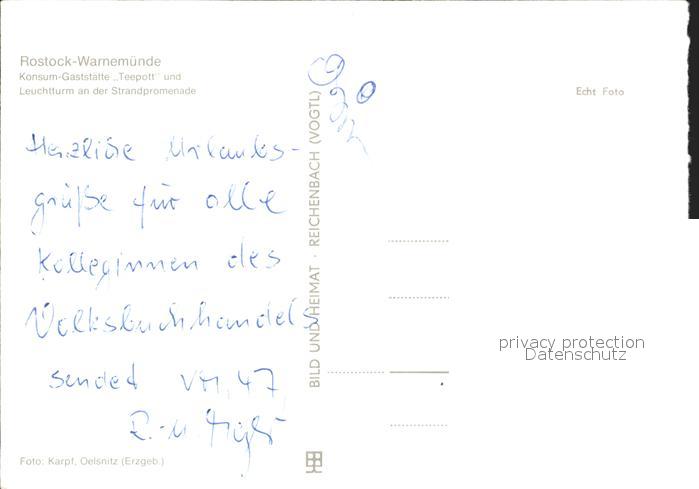 Rostock-Warnemünde
Konsum-Gaststätte „Teepott" und
Leuchtturm an der Strandpromenade
Echt Foto
Herzliche Urlaubs-
grüße für alle
Kolleginnen des
Volksbuchhandels
sendet
BILD UND HEIMAT · REICHENBACH (VOGTL)
privacy protection
Datenschutz
Foto: Karpf, Oelsnitz (Erzgeb.)